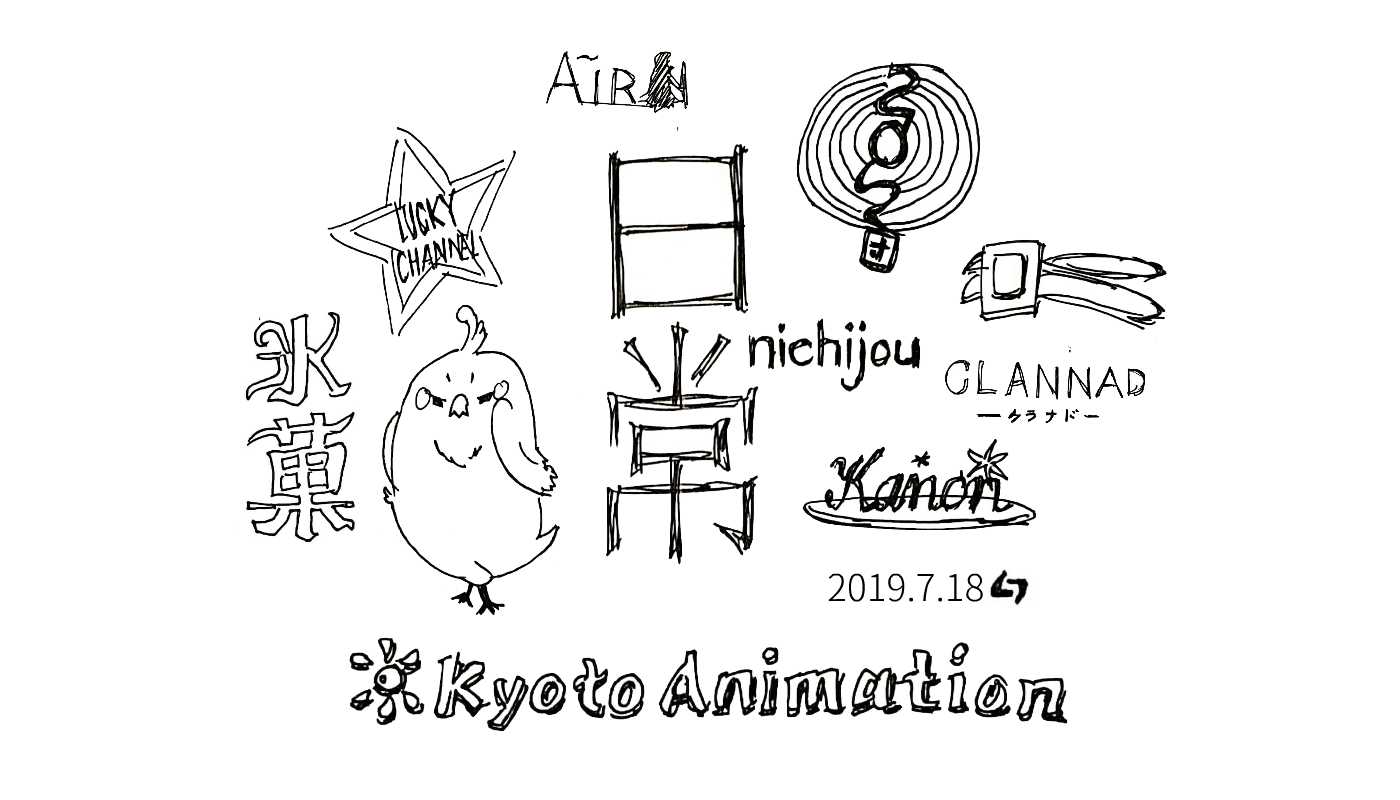 AIR
LUCKY
CHANNEL
日常
nichijou
氷菓
CLANNAD
ークラナドー
Kanon
2019.7.18
Kyoto Animation